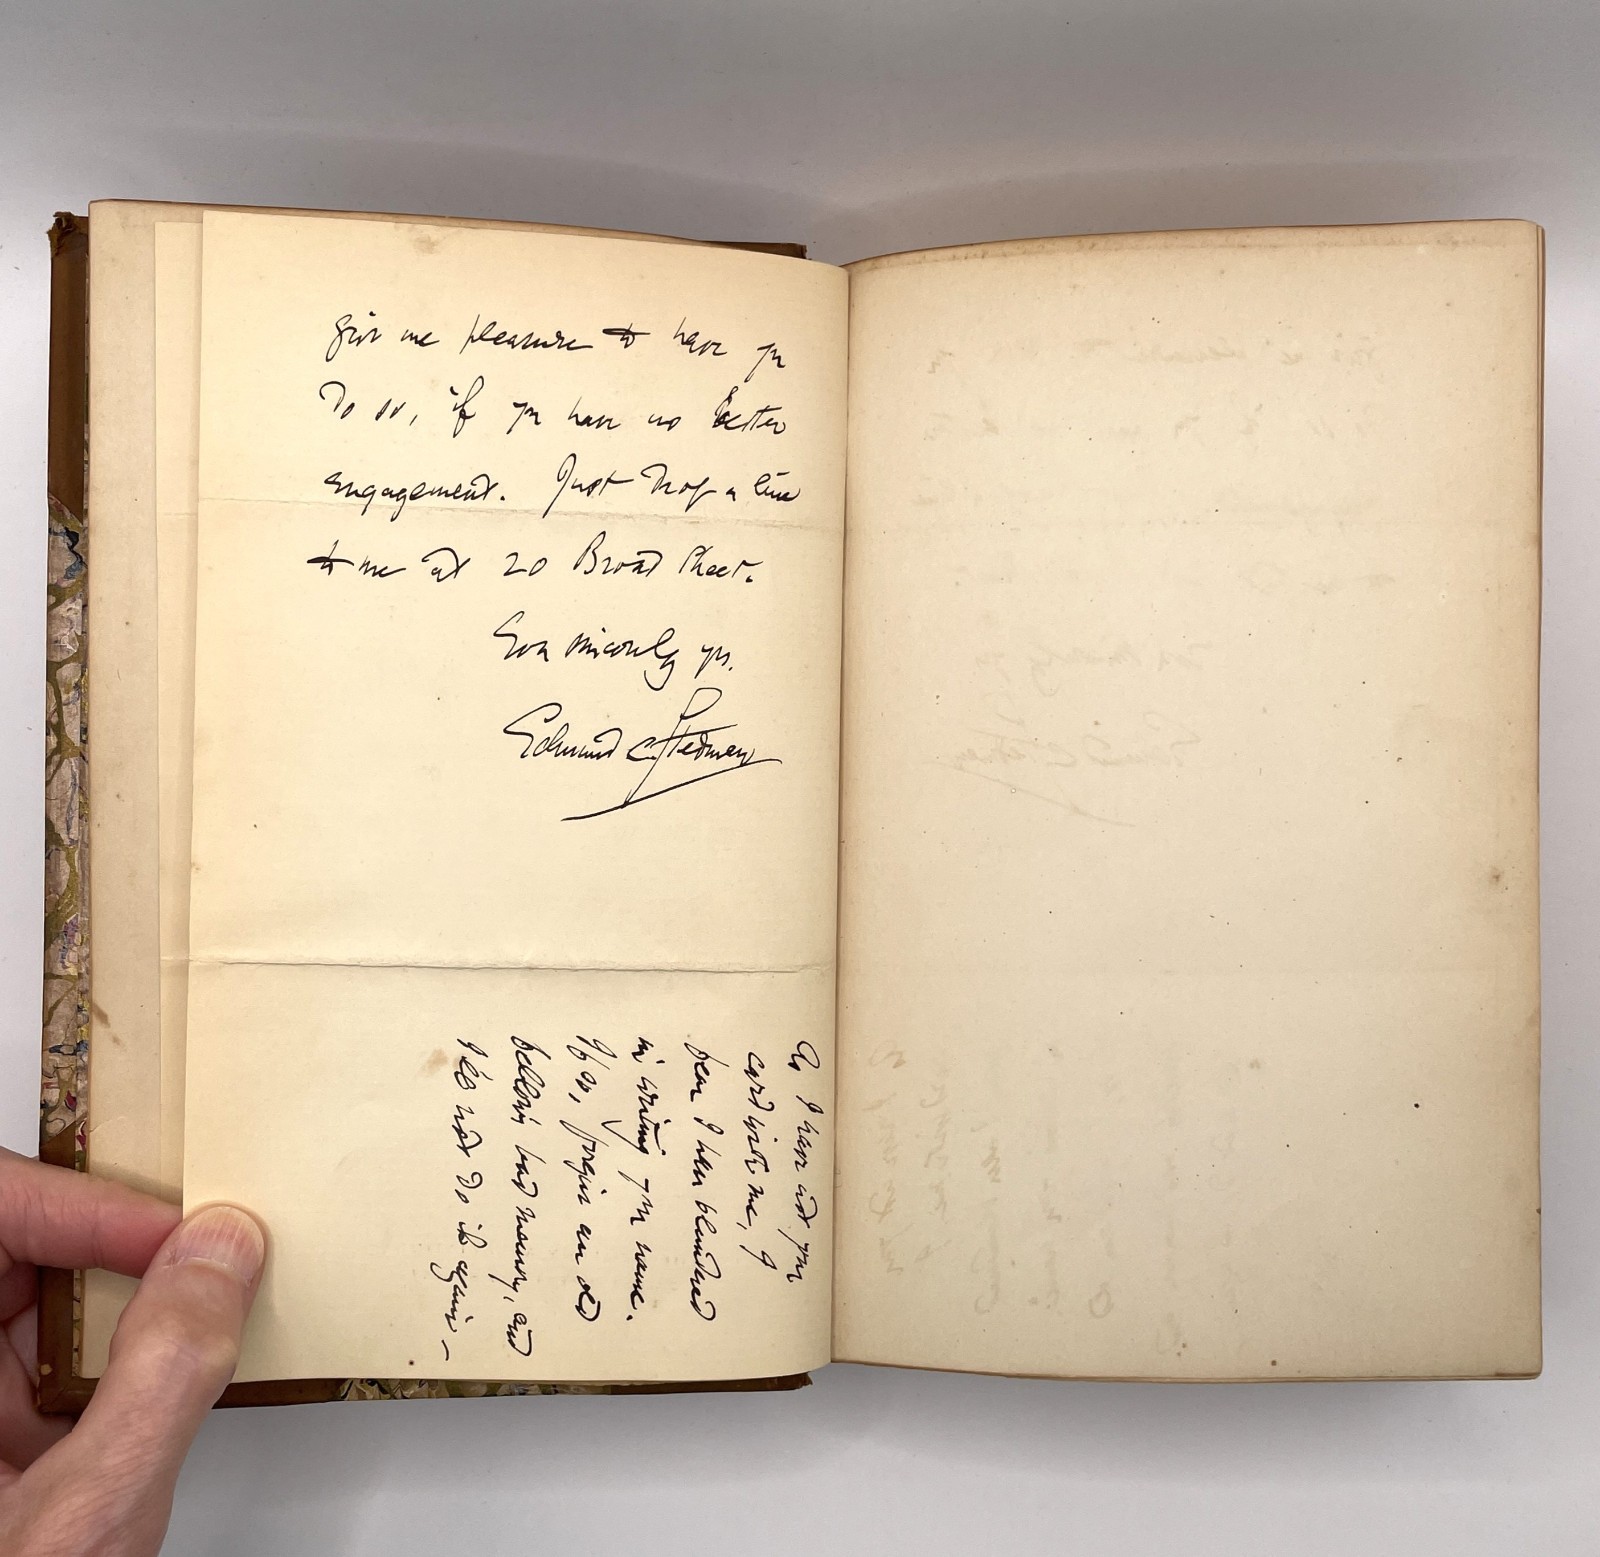 give me pleasure to have yr
do so, if yr have no better
engagement. Just drop a line
to me at 20 Broad Street.
Ever sincerely yrs.
Edmund C. Stedman
As I have not your
card with me, I
fear I have blundered
in writing yr name.
If so, forgive an old
fellow's bad memory, and
I'll not do it again —